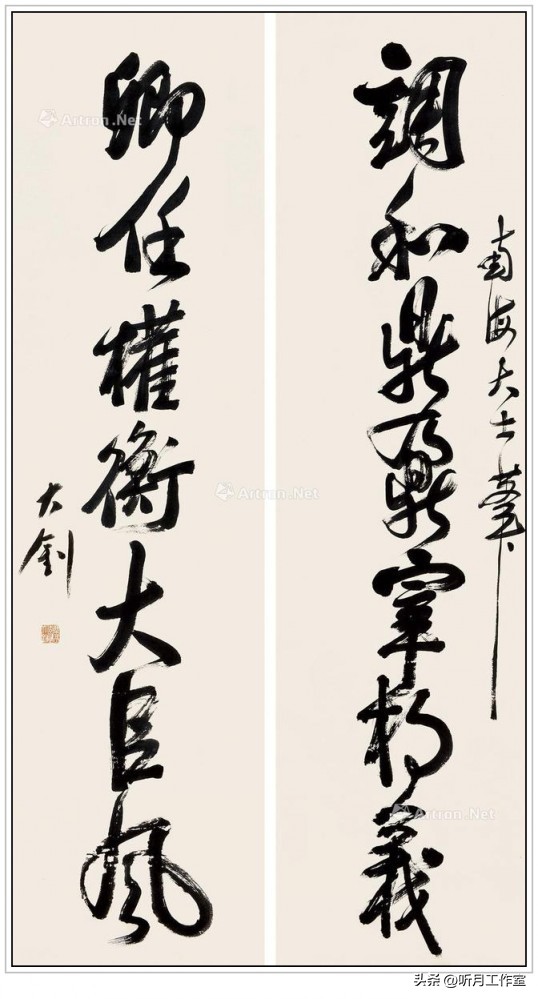 南海大士
調和鼎鼐宰相義
卿任權衡大臣風
大釗
Artron.Net
Artron.Net
Artron.Net
头条 @听月工作室